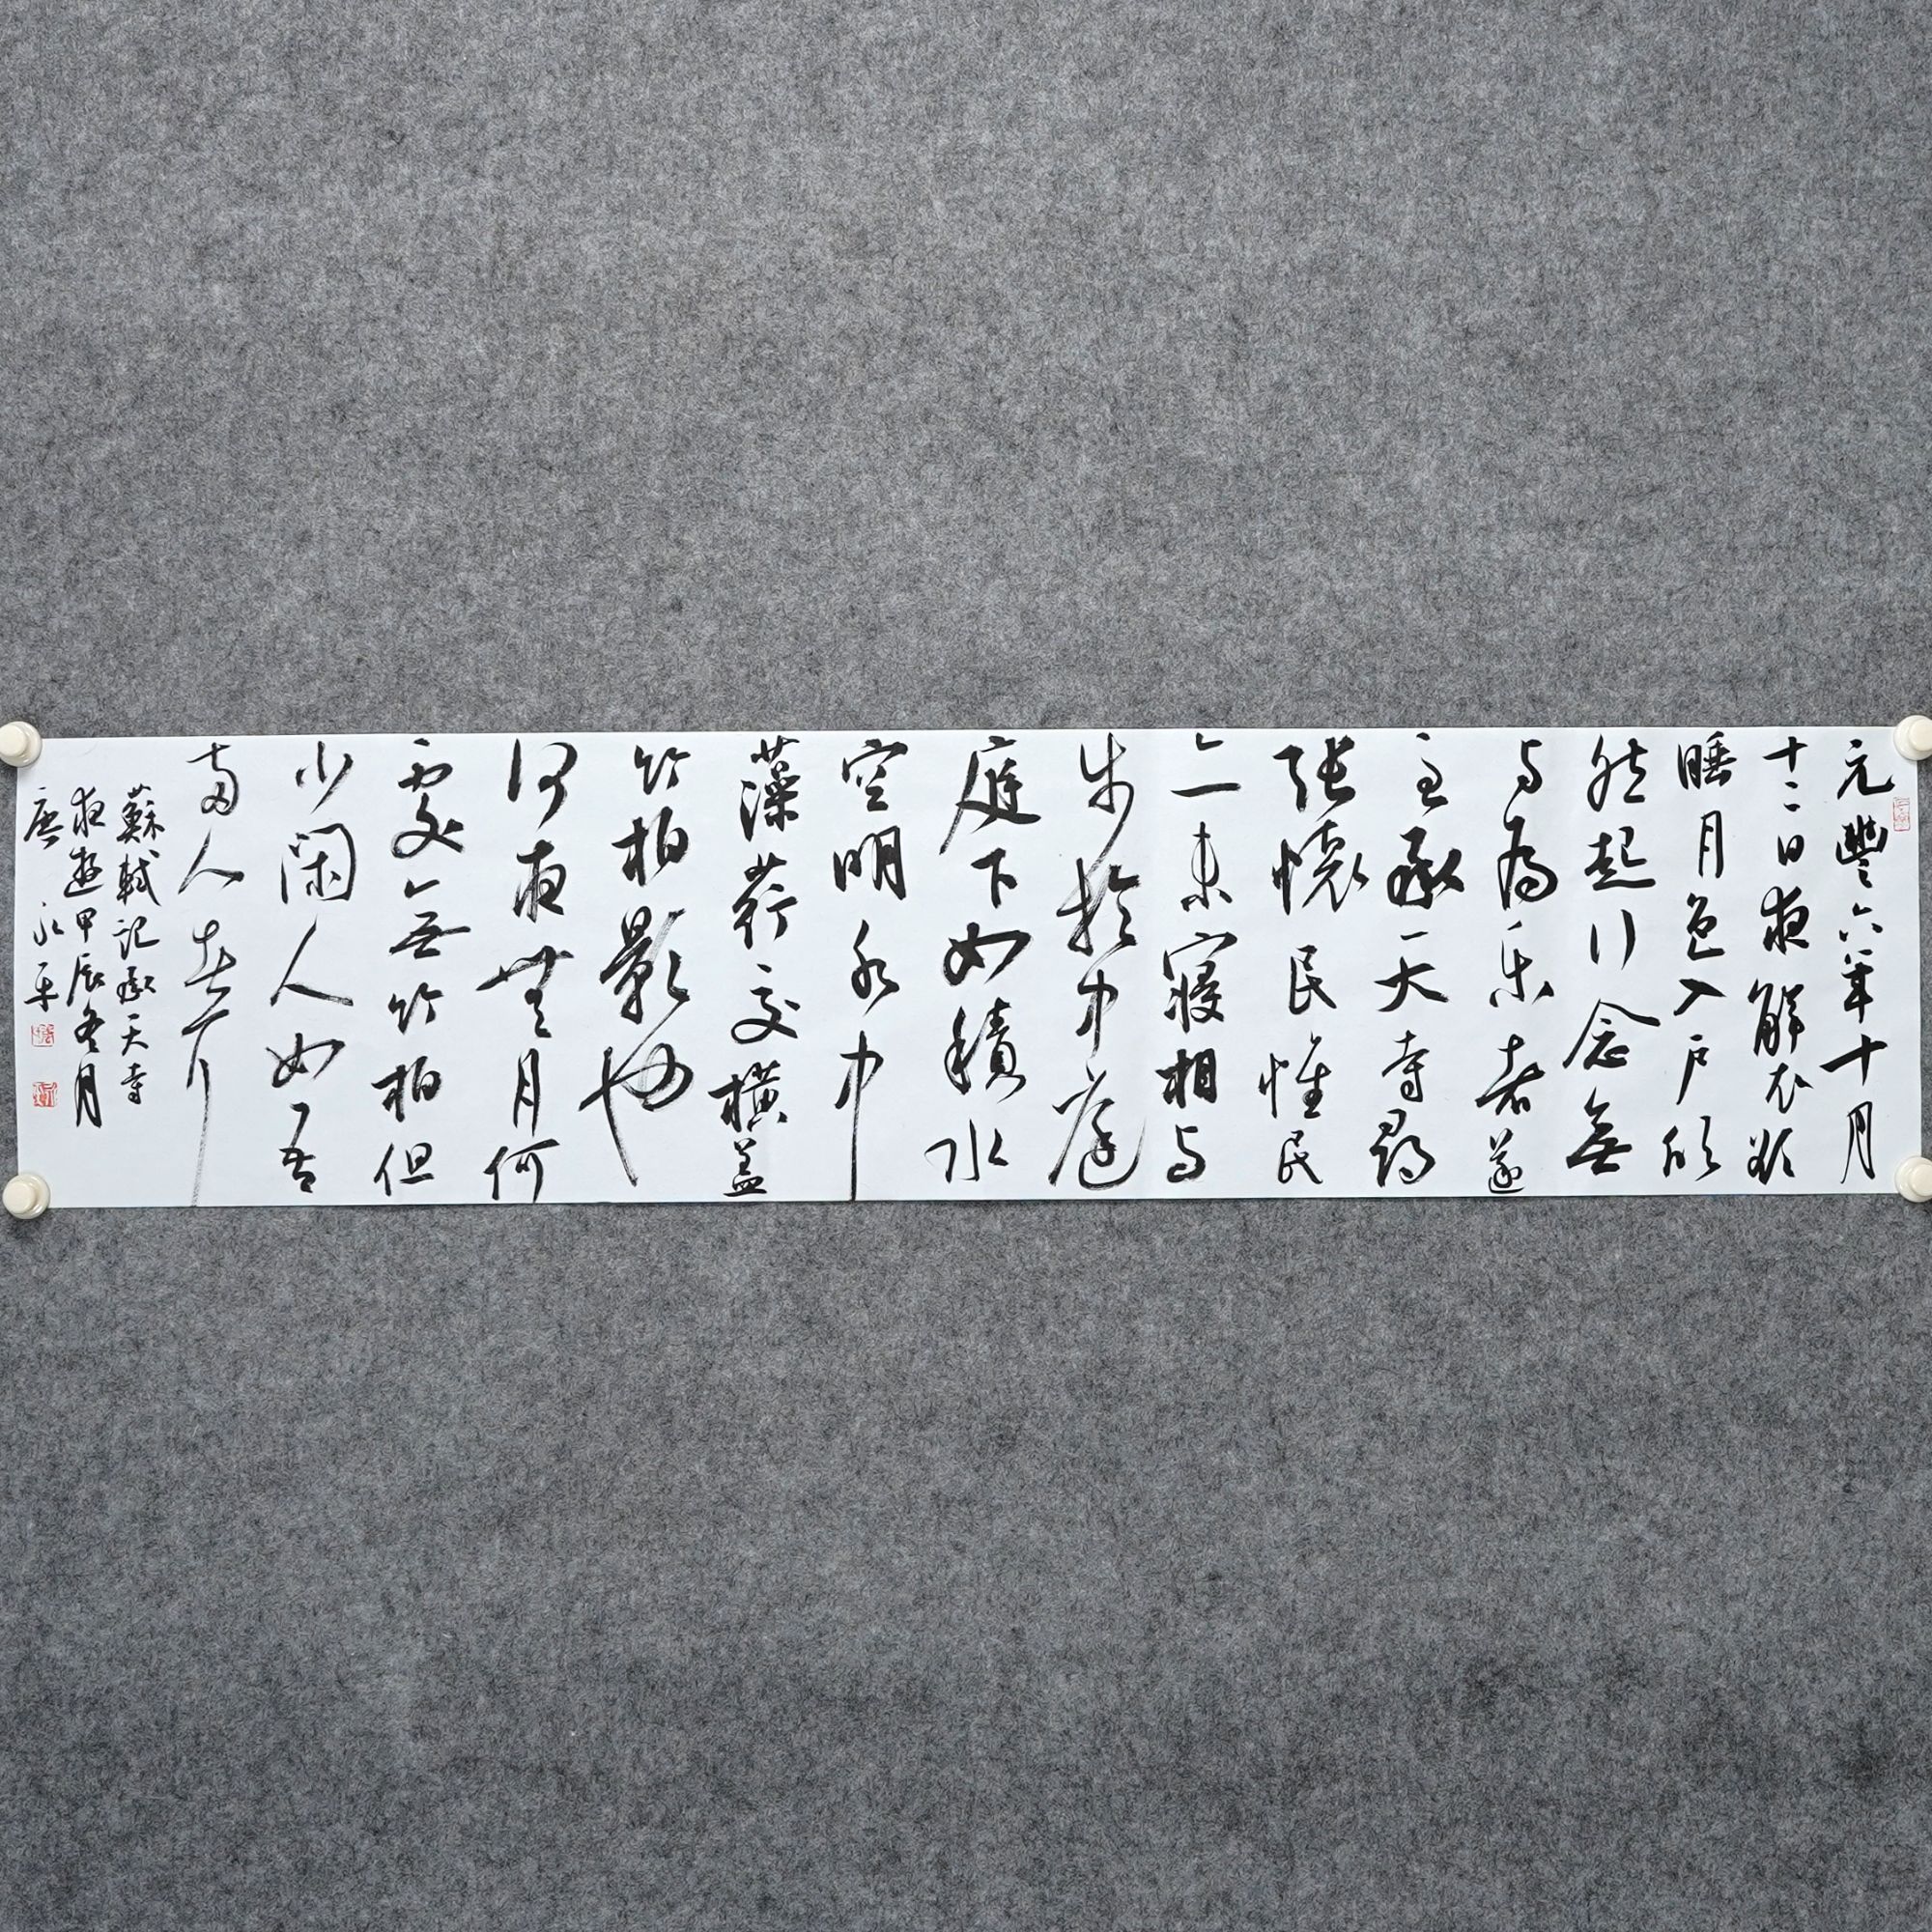 元豐六年十月
十二日夜解衣欲
睡月色入戶欣
然起行念無
与為樂者遂
至承天寺尋
張懷民懷民
亦未寢相与
步於中庭
庭下如積水
空明水中
藻荇交橫蓋
竹柏影也
何夜無月何
處無竹柏但
少閑人如吾
兩人者耳
蘇軾記承天寺
夜遊甲辰冬月
唐永平